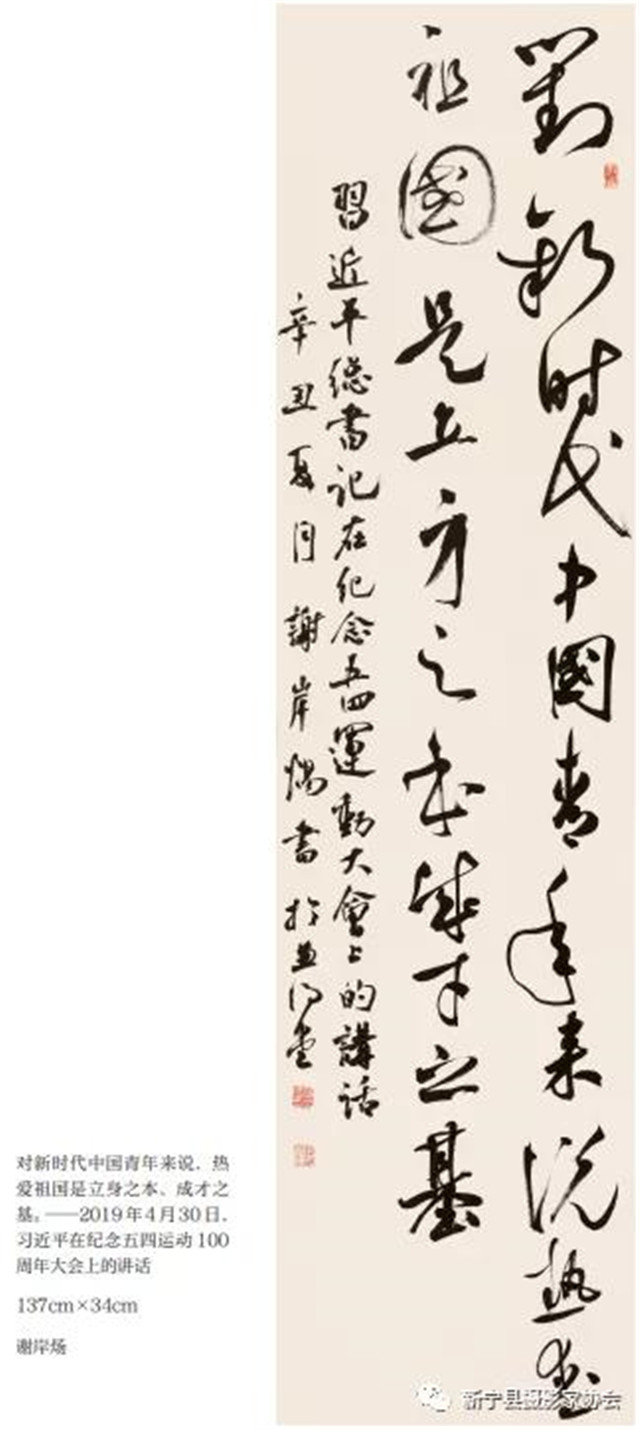 對新时代中国青年来说热爱
祖国是立身之本成才之基
習近平總書记在纪念五四運動大會上的講话
辛丑夏月謝岸炀書於並心堂
对新时代中国青年来说，热
爱祖国是立身之本、成才之
基。——2019年4月30日，
习近平在纪念五四运动100
周年大会上的讲话
137cm×34cm
谢岸炀
新宁县摄影家协会